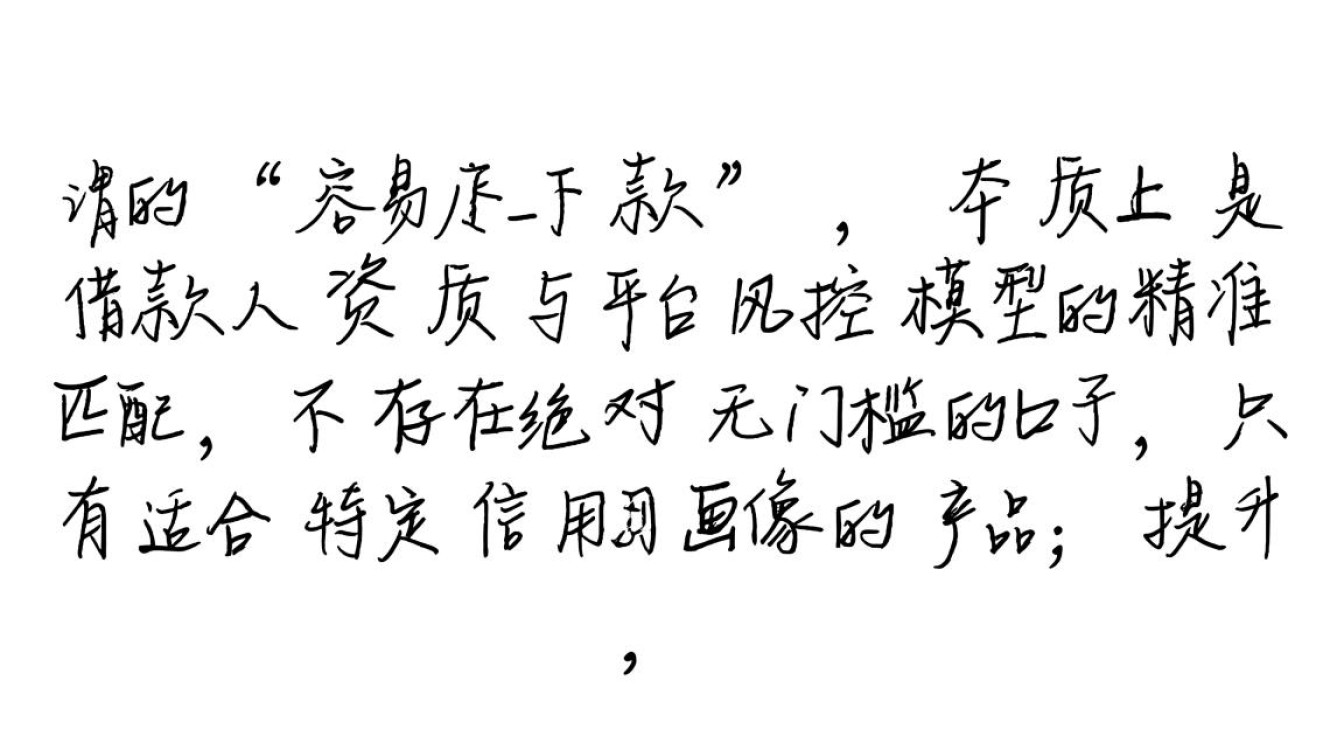 谓的“容易下款”，本质上是
借款人资质与平台风控模型的精准
匹配，不存在绝对无门槛的口子，只
有适合特定信用画像的产品；提升
，